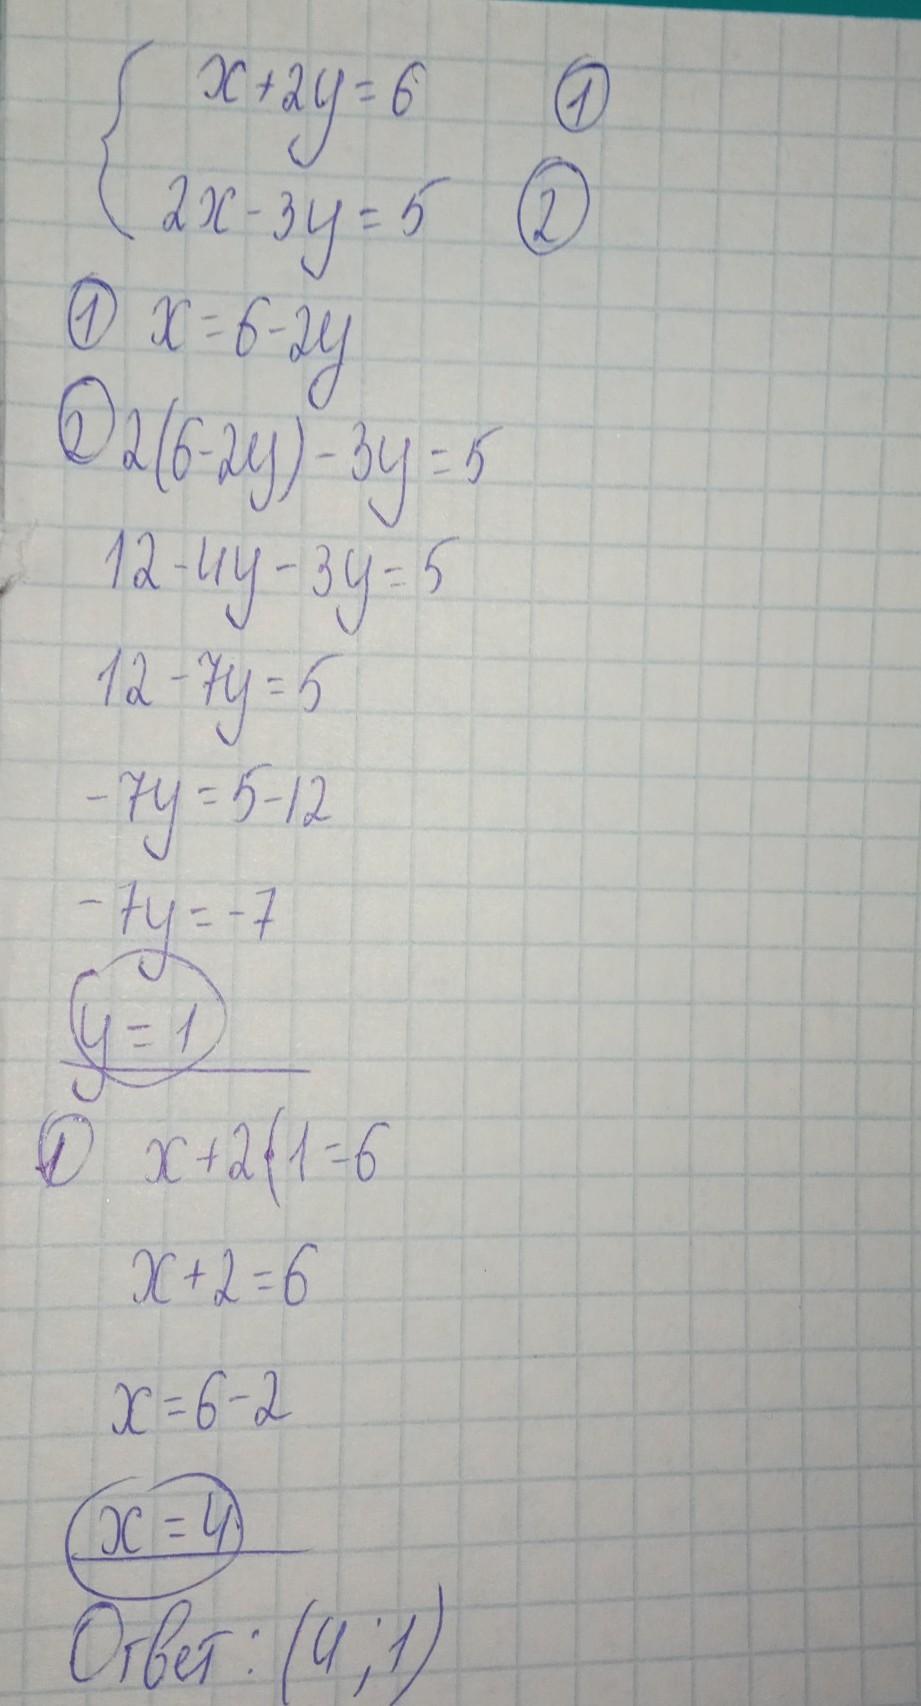 x+2y=6 ①
2x-3y=5 ②
① x=6-2y
② 2(6-2y)-3y=5
12-4y-3y=5
12-7y=5
-7y=5-12
-7y=-7
y=1
① x+2(1=6
x+2=6
x=6-2
x=4
Ответ: (4;1)